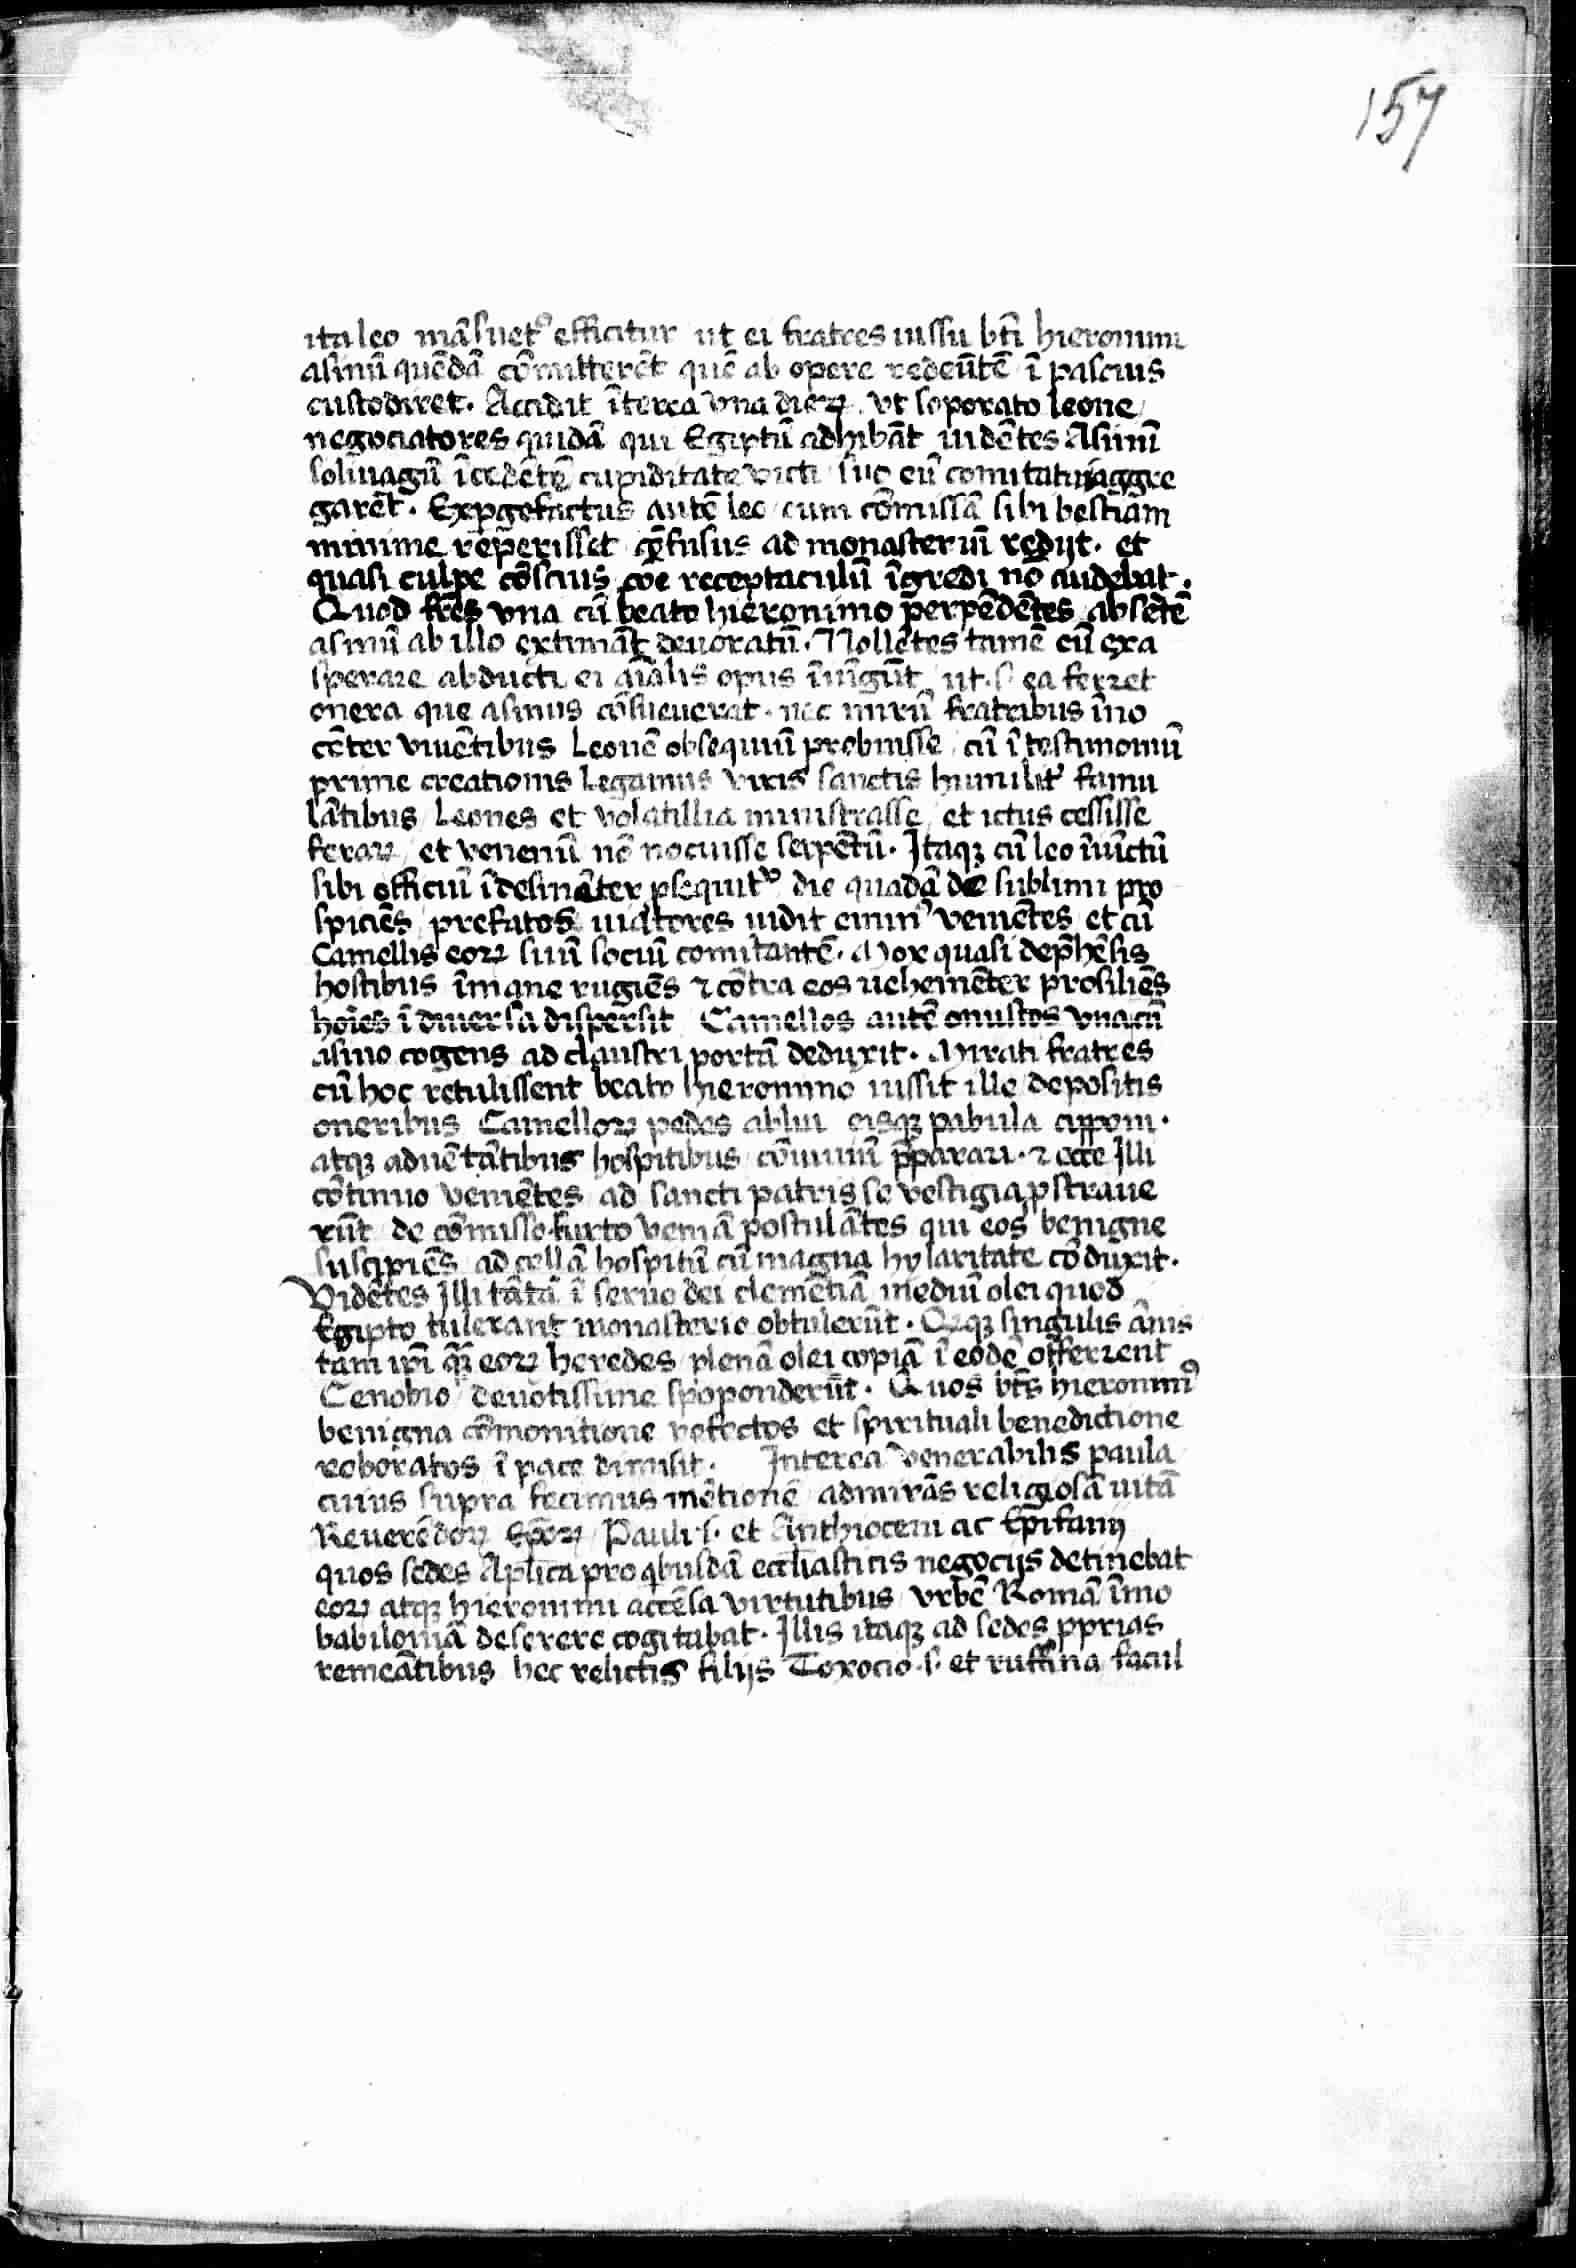 157
ita leo mãsuetꝰ efficitur ut ei fratres iussu bti̅ hieronimi
asinũ quẽdã cõmitterẽt quẽ ab opere redeũtẽ ĩ pascuis
custodiret. Accidit ĩterea vna dieꝝ vt soporato leone
negociatores quidã qui Egiptũ adhibãt uidẽtes Asinũ
soliuagũ ĩcedẽtẽ cupiditate victi suo eũ comitatui aggre
garẽt. Exp̱gefactus autẽ leo cum cõmissã sibi bestiam
minime reperisset cõfusus ad monasteriũ redijt. et
quasi culpe cõscius cõe receptaculũ ĩgredi nõ audebat.
Quod fr̅es vna cũ beato hieronimo perpẽdẽtes absẽtẽ
asinũ ab illo extimãt deuoratũ. Nollẽtes tamẽ eũ exa
sperare abducti ei aĩalis opus ĩiũgũt ut .s. ea ferret
onera que asinus cõsueuerat. nec mirũ fratribus ĩno
cẽter viuẽtibus Leonẽ obsequiũ prebuisse cũ ĩ testimoniũ
prime creationis legamus viris sanctis humilitꝰ famu
lãtibus Leones et volatillia ministrasse et ictus cessisse
feraꝝ et venenũ nõ nocuisse serpẽtũ. Itaqꝫ cũ leo ĩiũctũ
sibi officiũ ĩdesinẽter ꝓsequitꝰ die quadã de sublimi pro
spiciẽs prefatos uiatores uidit eminꝰ veniẽtes et cũ
Camellis eoꝝ suũ sociũ comitantẽ. Mox quasi dep̅hẽsis
hostibus ĩmane rugiẽs ⁊ cõtra eos uehemẽter prosiliẽs
hoĩes ĩ diuersa dispersit Camellos autẽ onustos vna cũ
asino cogens ad claustri portã deduxit. Mirati fratres
cũ hoc retulissent beato hieronimo iussit ille depositis
oneribus Camelloꝝ pedes ablui eisqꝫ pabula apponi.
atqꝫ aduẽtãtibus hospitibus cõuiuiũ p̅parari. ⁊ ecce Illi
cõtinuo veniẽtes ad sancti patris se vestigia ꝓstraue
rũt de cõmisso furto veniã postulãtes qui eos benigne
suscipiẽs ad cellã hospitũ cũ magna hylaritate cõduxit.
Vidẽtes Illi tãtã ĩ seruo dei clemẽtiã mediũ olei quod
Egipto tulerant monasterio obtulerũt. Qꝫ singulis ãnis
tam ip̅i qꝫ eoꝝ heredes plenã olei copiã ĩ eodẽ offerrent
Cenobio deuotissime spoponderũt. Quos bt̅s hieronimꝰ
benigna cõmonitione refectos et spirituali benedictione
roboratos ĩ pace dimisit. Interea venerabilis paula
cuius supra fecimus mẽtionẽ admirãs religiosã uitã
Reuerẽdoꝝ Ep̅oꝝ Pauli .s. et Anthioceni ac Epifanij
quos sedes Aplica pro qbusdã eccl̅iasticis negocijs detinebat
eoꝝ atqꝫ hieronimi accẽsa virtutibus vrbẽ Romã ĩmo
babiloniã deserere cogitabat. Illis itaqꝫ ad sedes ꝓprias
remeãtibus hec relictis filijs Toxocio .s. et ruffina facul